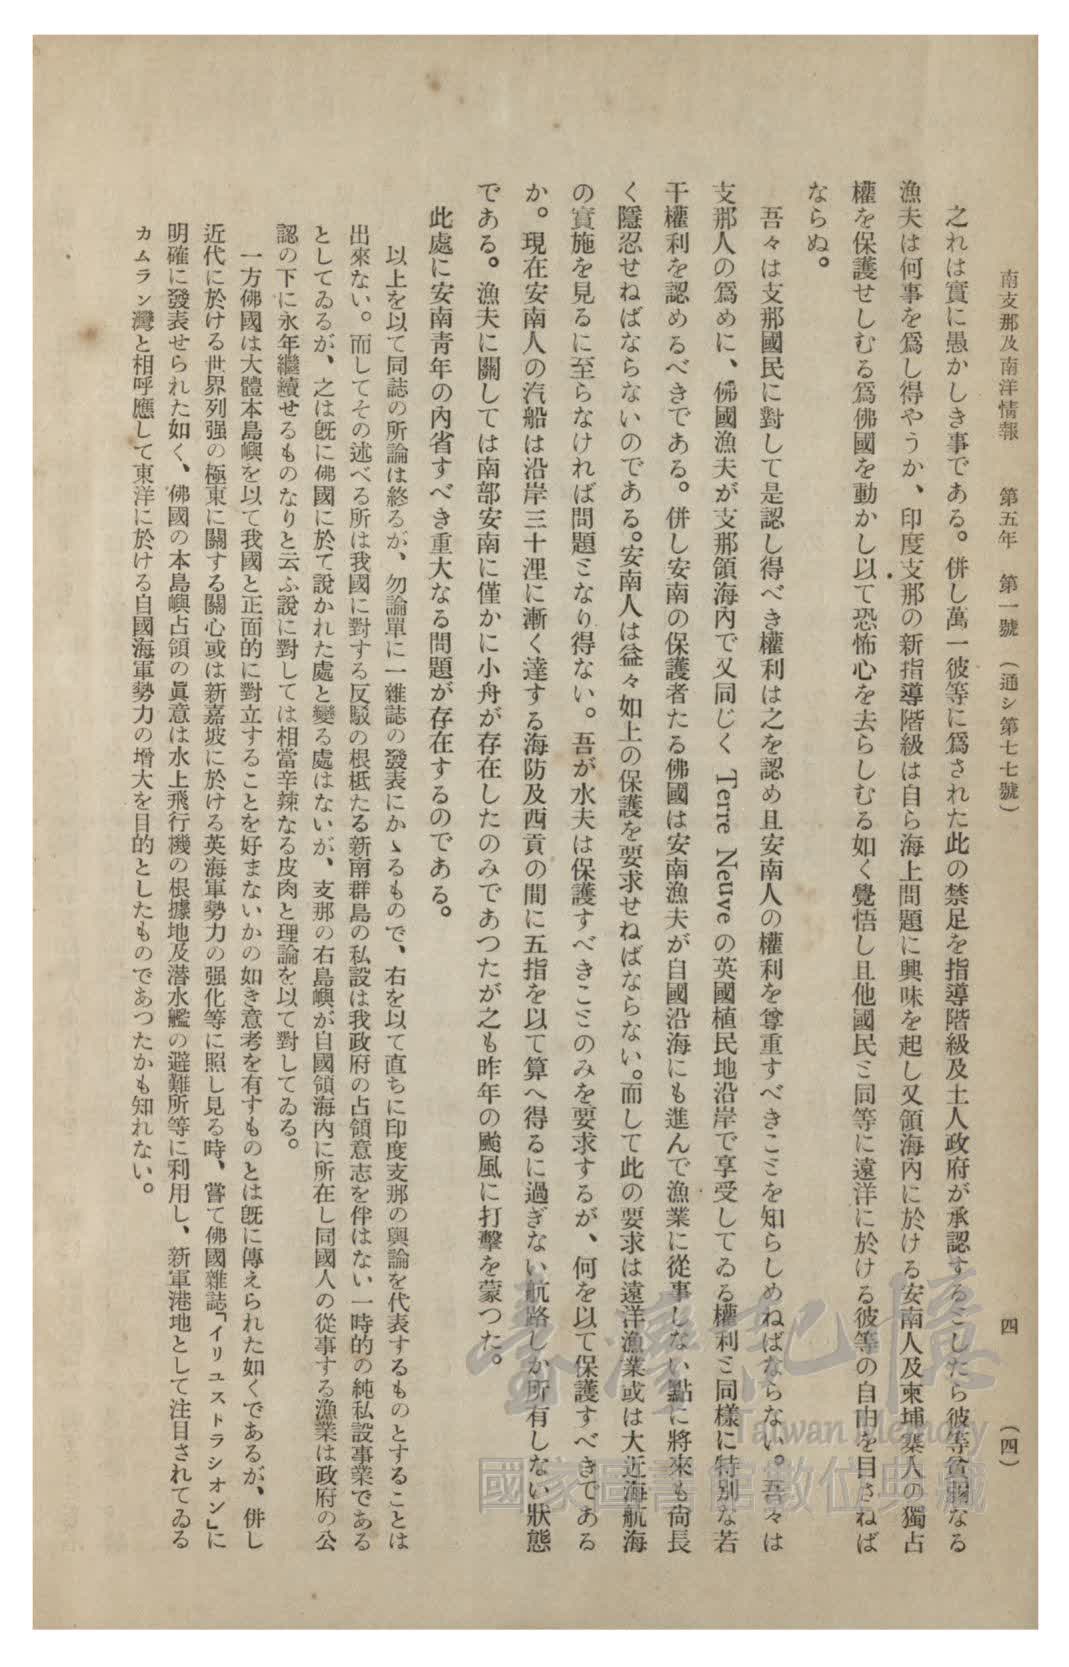 南支那及南洋情報　第五年　第一號　（通シ第七七號）　四　（四）
之れは實に愚かしき事である。併し萬一彼等に爲された此の禁足を指導階級及土人政府が承認するこしたら彼等貧弱なる
漁夫は何事を爲し得やうか、印度支那の新指導階級は自ら海上問題に興味を起し又領海內に於ける安南人及柬埔寨人の獨占
權を保護せしむる爲佛國を動かし以て恐怖心を去らしむる如く覺悟し且他國民ミ同等に遠洋に於ける彼等の自由を目さねば
ならぬ。
吾々は支那國民に對して是認し得べき權利は之を認め且安南人の權利を尊重すべきこミを知らしめねばならない。吾々は
支那人の爲めに、佛國漁夫が支那領海內で又同じく Terre Neuve の英國植民地沿岸で享受してゐる權利ミ同樣に特別な若
干權利を認めるべきである。併し安南の保護者たる佛國は安南漁夫が自國沿海にも進んで漁業に從事しない點に將來も尙長
く隱忍せねばならないのである。安南人は益々如上の保護を要求せねばならない。而して此の要求は遠洋漁業或は大近海航海
の實施を見るに至らなければ問題ミなり得ない。吾が水夫は保護すべきこミのみを要求するが、何を以て保護すべきである
か。現在安南人の汽船は沿岸三十浬に漸く達する海防及西貢の間に五指を以て算へ得るに過ぎない航路しか所有しない狀態
である。漁夫に關しては南部安南に僅かに小舟が存在したのみであつたが之も昨年の颱風に打擊を蒙つた。
此處に安南靑年の內省すべき重大なる問題が存在するのである。
以上を以て同誌の所論は終るが、勿論單に一雜誌の發表にかゝるもので、右を以て直ちに印度支那の輿論を代表するものとすることは
出來ない。而してその述べる所は我國に對する反駁の根柢たる新南群島の私設は我政府の占領意志を伴はない一時的の純私設事業である
としてゐるが、之は旣に佛國に於て說かれた處と變る處はないが、支那の右島嶼が自國領海内に所在し同國人の從事する漁業は政府の公
認の下に永年繼續せるものなりと云ふ說に對しては相當辛辣なる皮肉と理論を以て對してゐる。
一方佛國は大體本島嶼を以て我國と正面的に對立することを好まないかの如き意考を有すものとは旣に傳えられた如くであるが、併し
近代に於ける世界列强の極東に關する關心或は新嘉坡に於ける英海軍勢力の强化等に照し見る時、嘗て佛國雜誌「イリュストラシオン」に
明確に發表せられた如く、佛國の本島嶼占領の眞意は水上飛行機の根據地及潜水艦の避難所等に利用し、新軍港地として注目されてゐる
カムラン灣と相呼應して東洋に於ける自國海軍勢力の增大を目的としたものであつたかも知れない。
臺灣記憶
Taiwan Memory
國家圖書館數位典藏